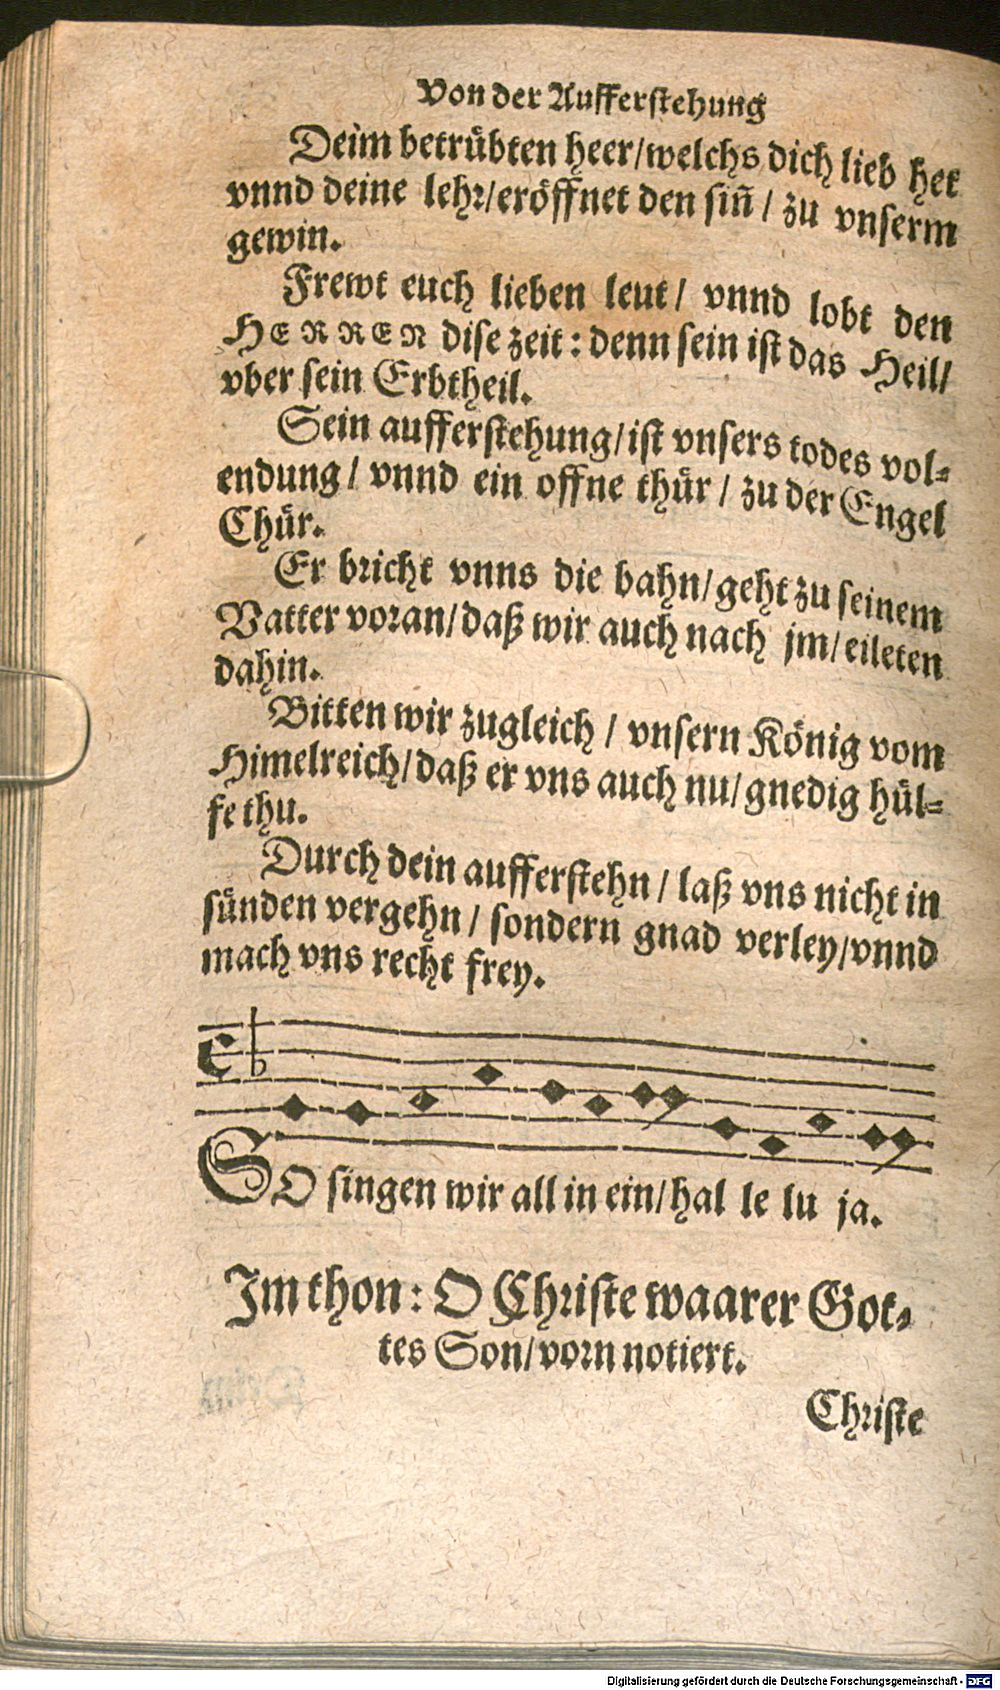 Von der Aufferstehung
Deim betrübten heer/welchs dich lieb het
vnnd deine lehr/eröffnet den sin̄ / zu vnserm
gewin.
Frewt euch lieben leut / vnnd lobt den
HERREN dise zeit: denn sein ist das Heil/
vber sein Erbtheil.
Sein aufferstehung/ist vnsers todes vol-
endung / vnnd ein offne thür / zu der Engel
Chür.
Er bricht vnns die bahn/geht zu seinem
Vatter voran/daß wir auch nach jm/eileten
dahin.
Bitten wir zugleich / vnsern König vom
Himelreich/daß er vns auch nu/gnedig hül-
fe thu.
Durch dein aufferstehn / laß vns nicht in
sünden vergehn / sondern gnad verley/vnnd
mach vns recht frey.
SO singen wir all in ein/hal le lu ja.
Im thon: O Christe waarer Got-
tes Son/vorn notiert.
Christe
Digitalisierung gefördert durch die Deutsche Forschungsgemeinschaft - DFG